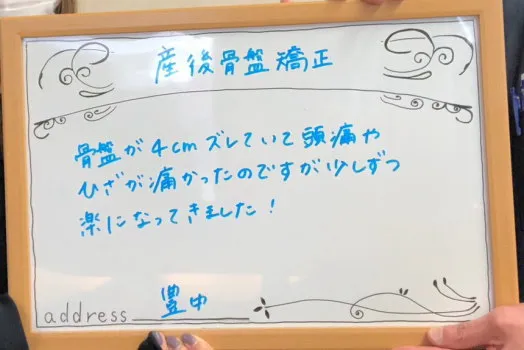 産後骨盤矯正
骨盤が4cmズレていて頭痛や
ひざが痛かったのですが少しずつ
楽になってきました!
address 豊中